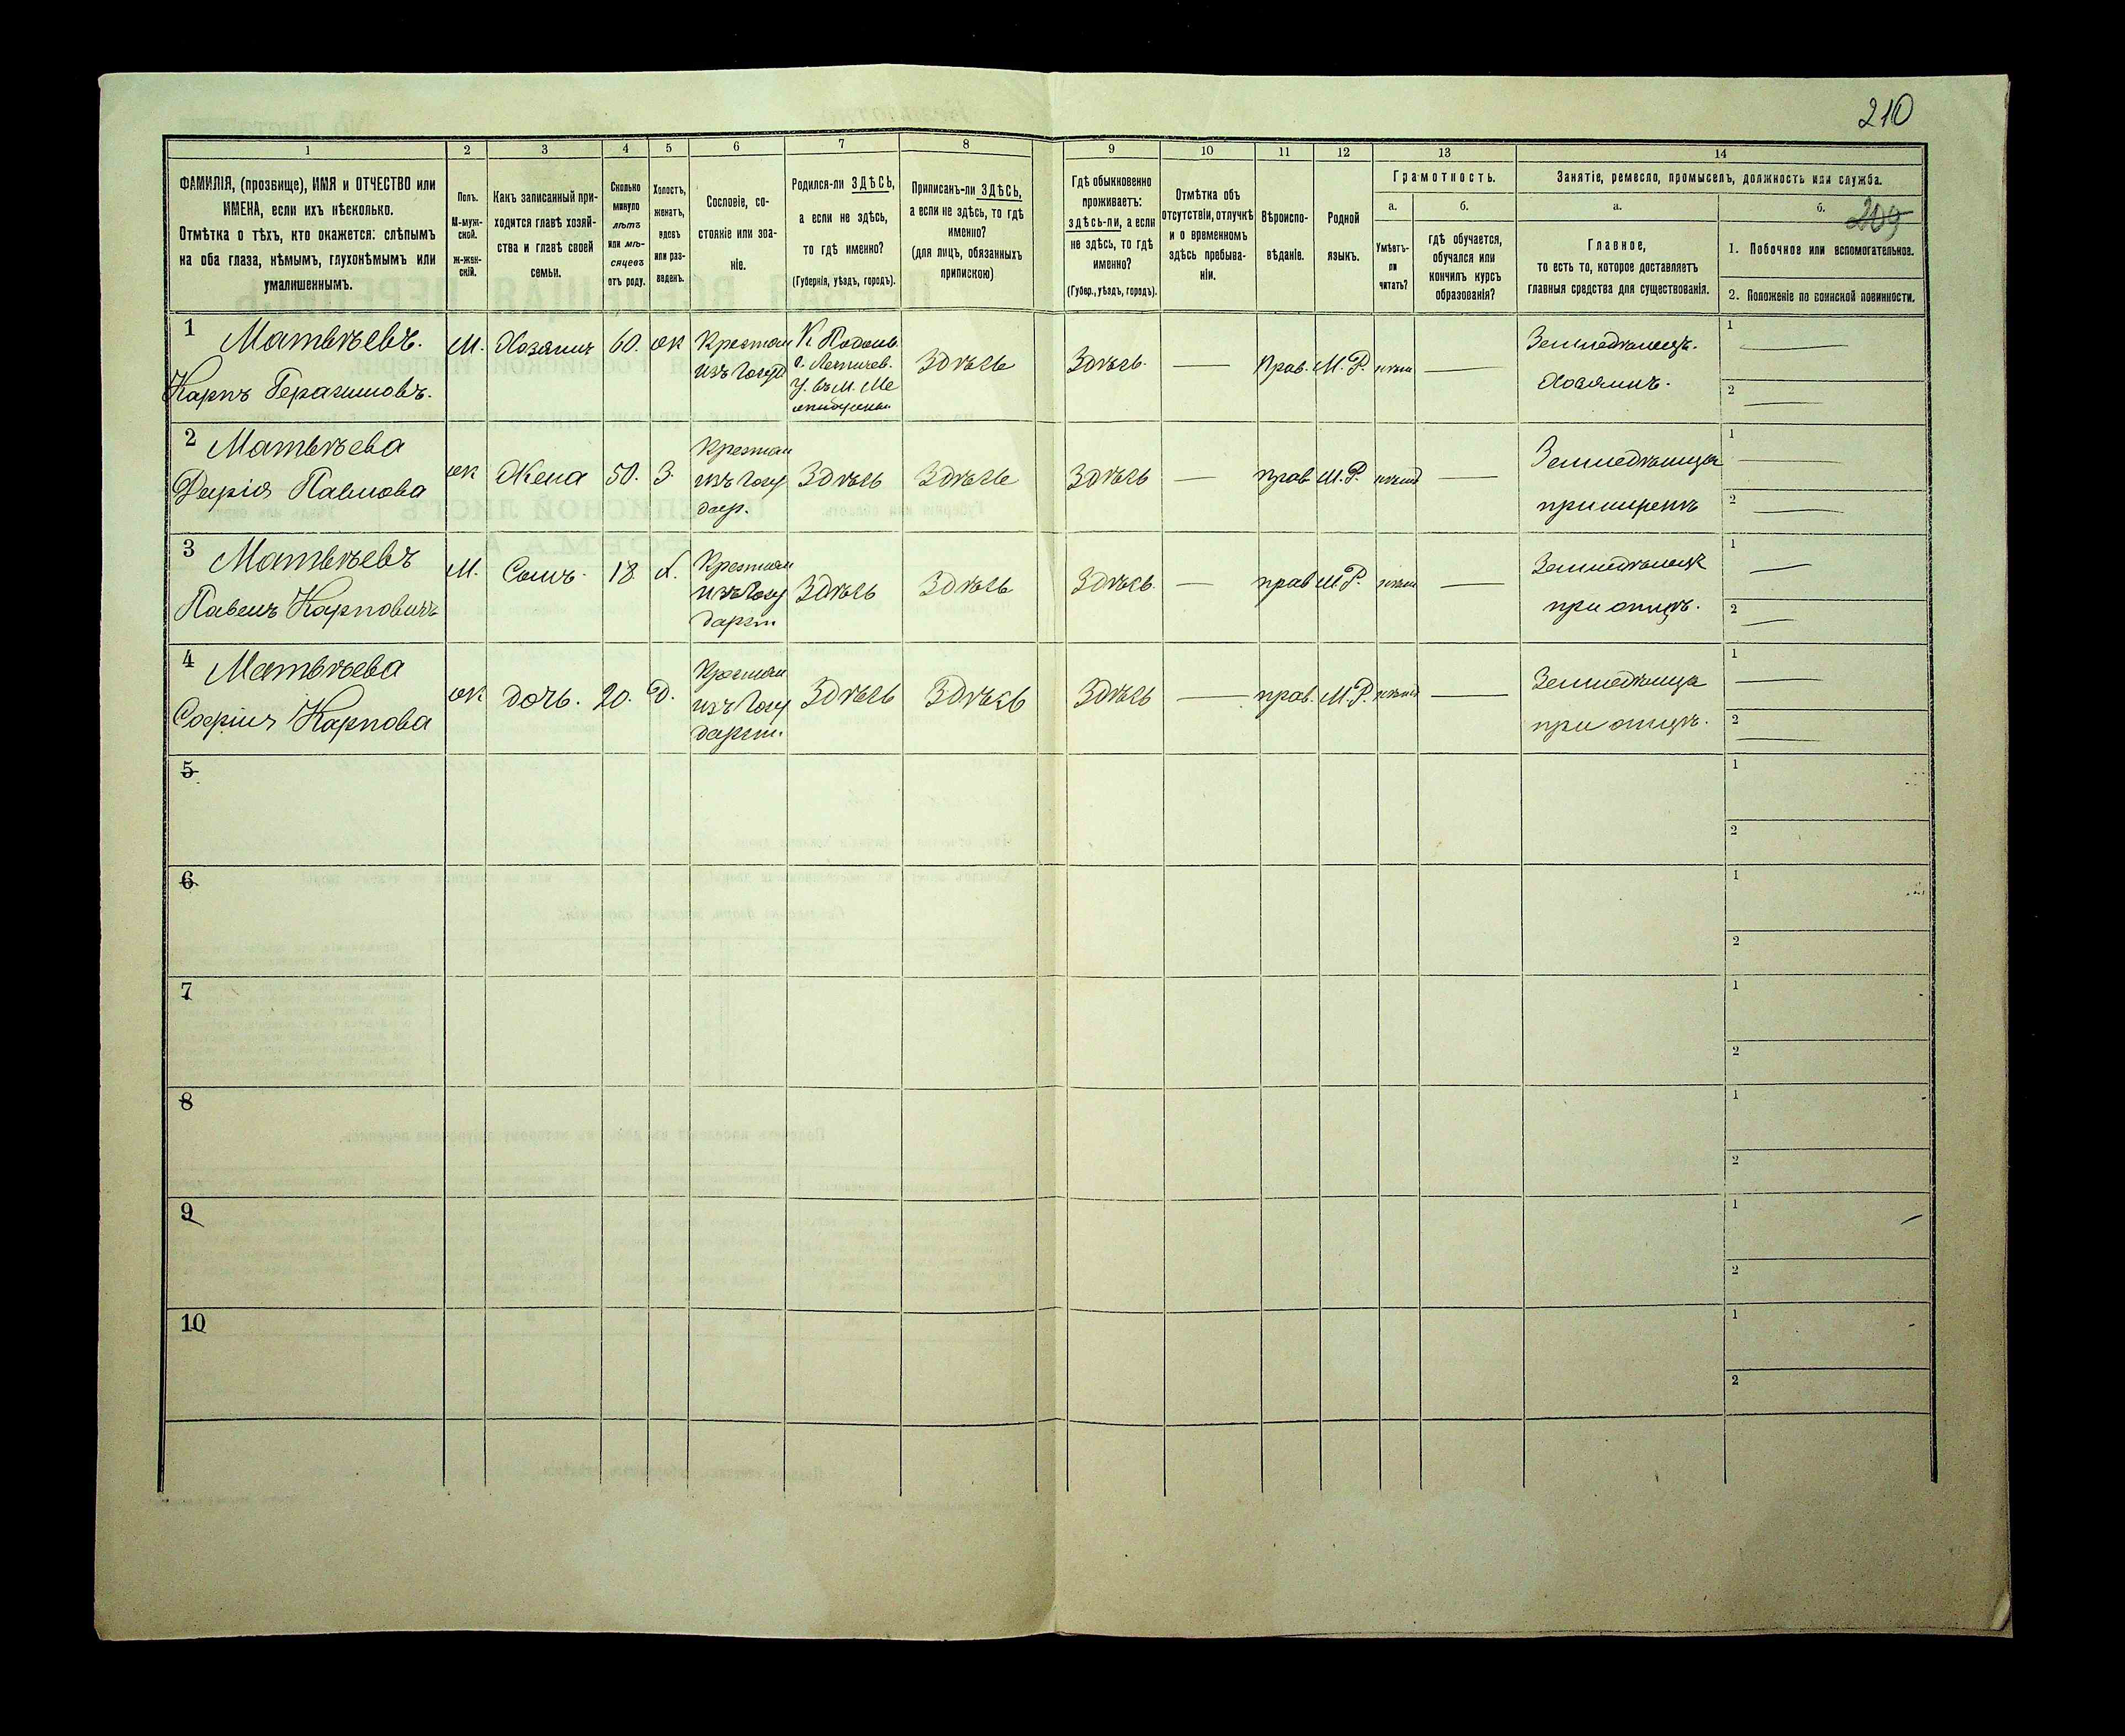 210
1
2
3
4
5
6
7
8
9
10
11
12
13
14
ФАМИЛІЯ, (прозвище), ИМЯ и ОТЧЕСТВО или
ИМЕНА, если ихъ нѣсколько.
Отмѣтка о тѣхъ, кто окажется: слѣпымъ
на оба глаза, нѣмымъ, глухонѣмымъ или
умалишеннымъ.
Полъ.
М-муж-
ской.
Ж-жен-
скій.
Какъ записанный при-
ходится главѣ хозяй-
ства и главѣ своей
семьи.
Сколько
минуло
лѣтъ
или мѣ-
сяцевъ
отъ роду.
Холостъ,
женатъ,
вдовъ
или раз-
веденъ.
Сословіе, со-
стояніе или зва-
ніе.
Родился-ли ЗДѢСЬ,
а если не здѣсь,
то гдѣ именно?
(Губернія, уѣздъ, городъ).
Приписанъ-ли ЗДѢСЬ,
а если не здѣсь, то гдѣ
именно?
(для лицъ, обязанныхъ
припискою)
Гдѣ обыкновенно
проживаетъ:
здѣсь-ли, а если
не здѣсь, то гдѣ
именно?
(Губер., уѣздъ, городъ).
Отмѣтка объ
отсутствіи, отлучкѣ
и о временномъ
здѣсь пребыва-
ніи.
Вѣроиспо-
вѣданіе.
Родной
языкъ.
Грамотность.
а.
Умѣетъ-
ли
читать?
б.
гдѣ обучается,
обучался или
кончилъ курсъ
образованія?
Занятіе, ремесло, промыселъ, должность или служба.
а.
Главное,
то есть то, которое доставляетъ
главныя средства для существованія.
б.
209
1. Побочное или вспомогательное.
2. Положеніе по воинской повинности.
1 Матвѣевъ.
Карпъ Герасимовъ.
М. Хозяинъ 60. ж Крестьян
изъ Госуд
Подоль.
г. Летичев.
У. въ м. Ме
Здѣсь Здѣсь. — Прав. М. Р. нѣт —
Земледѣлецъ.
Хозяинъ.
1 —
2 —
2 Матвѣева
Дарія Павлова
ж Жена 50. З. Крестьян
изъ Госу
дар.
Здѣсь Здѣсь Здѣсь — прав М. Р. нѣт —
Земледѣлица
при мужѣ
1 —
2 —
3 Матвѣевъ
Павелъ Карповичъ
М. Сынъ 18 х. Крестьян
изъ Госу
дарст.
Здѣсь Здѣсь Здѣсь. — прав М. Р. нѣт —
Земледѣлецъ
при отцѣ.
1 —
2 —
4 Матвѣева
Софія Карпова
ж дочь. 20. Д. Крестьян
изъ Госу
дарст.
Здѣсь Здѣсь Здѣсь — прав. М. Р. нѣт —
Земледѣлица
при отцѣ.
1 —
2 —
5
1
2
6
1
2
7
1
2
8
1
2
9
1
2
10
1
2